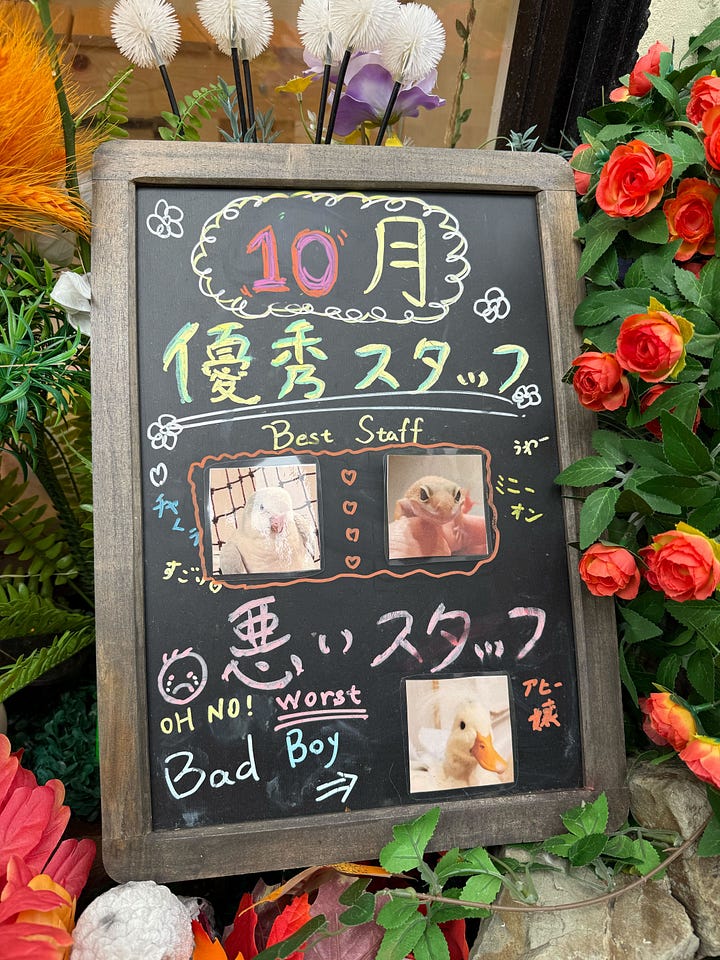 10月
優秀スタッフ
Best Staff
うわー
ミニー
オン
すごッ
悪いスタッフ
OH NO! worst
Bad Boy
アヒー
様